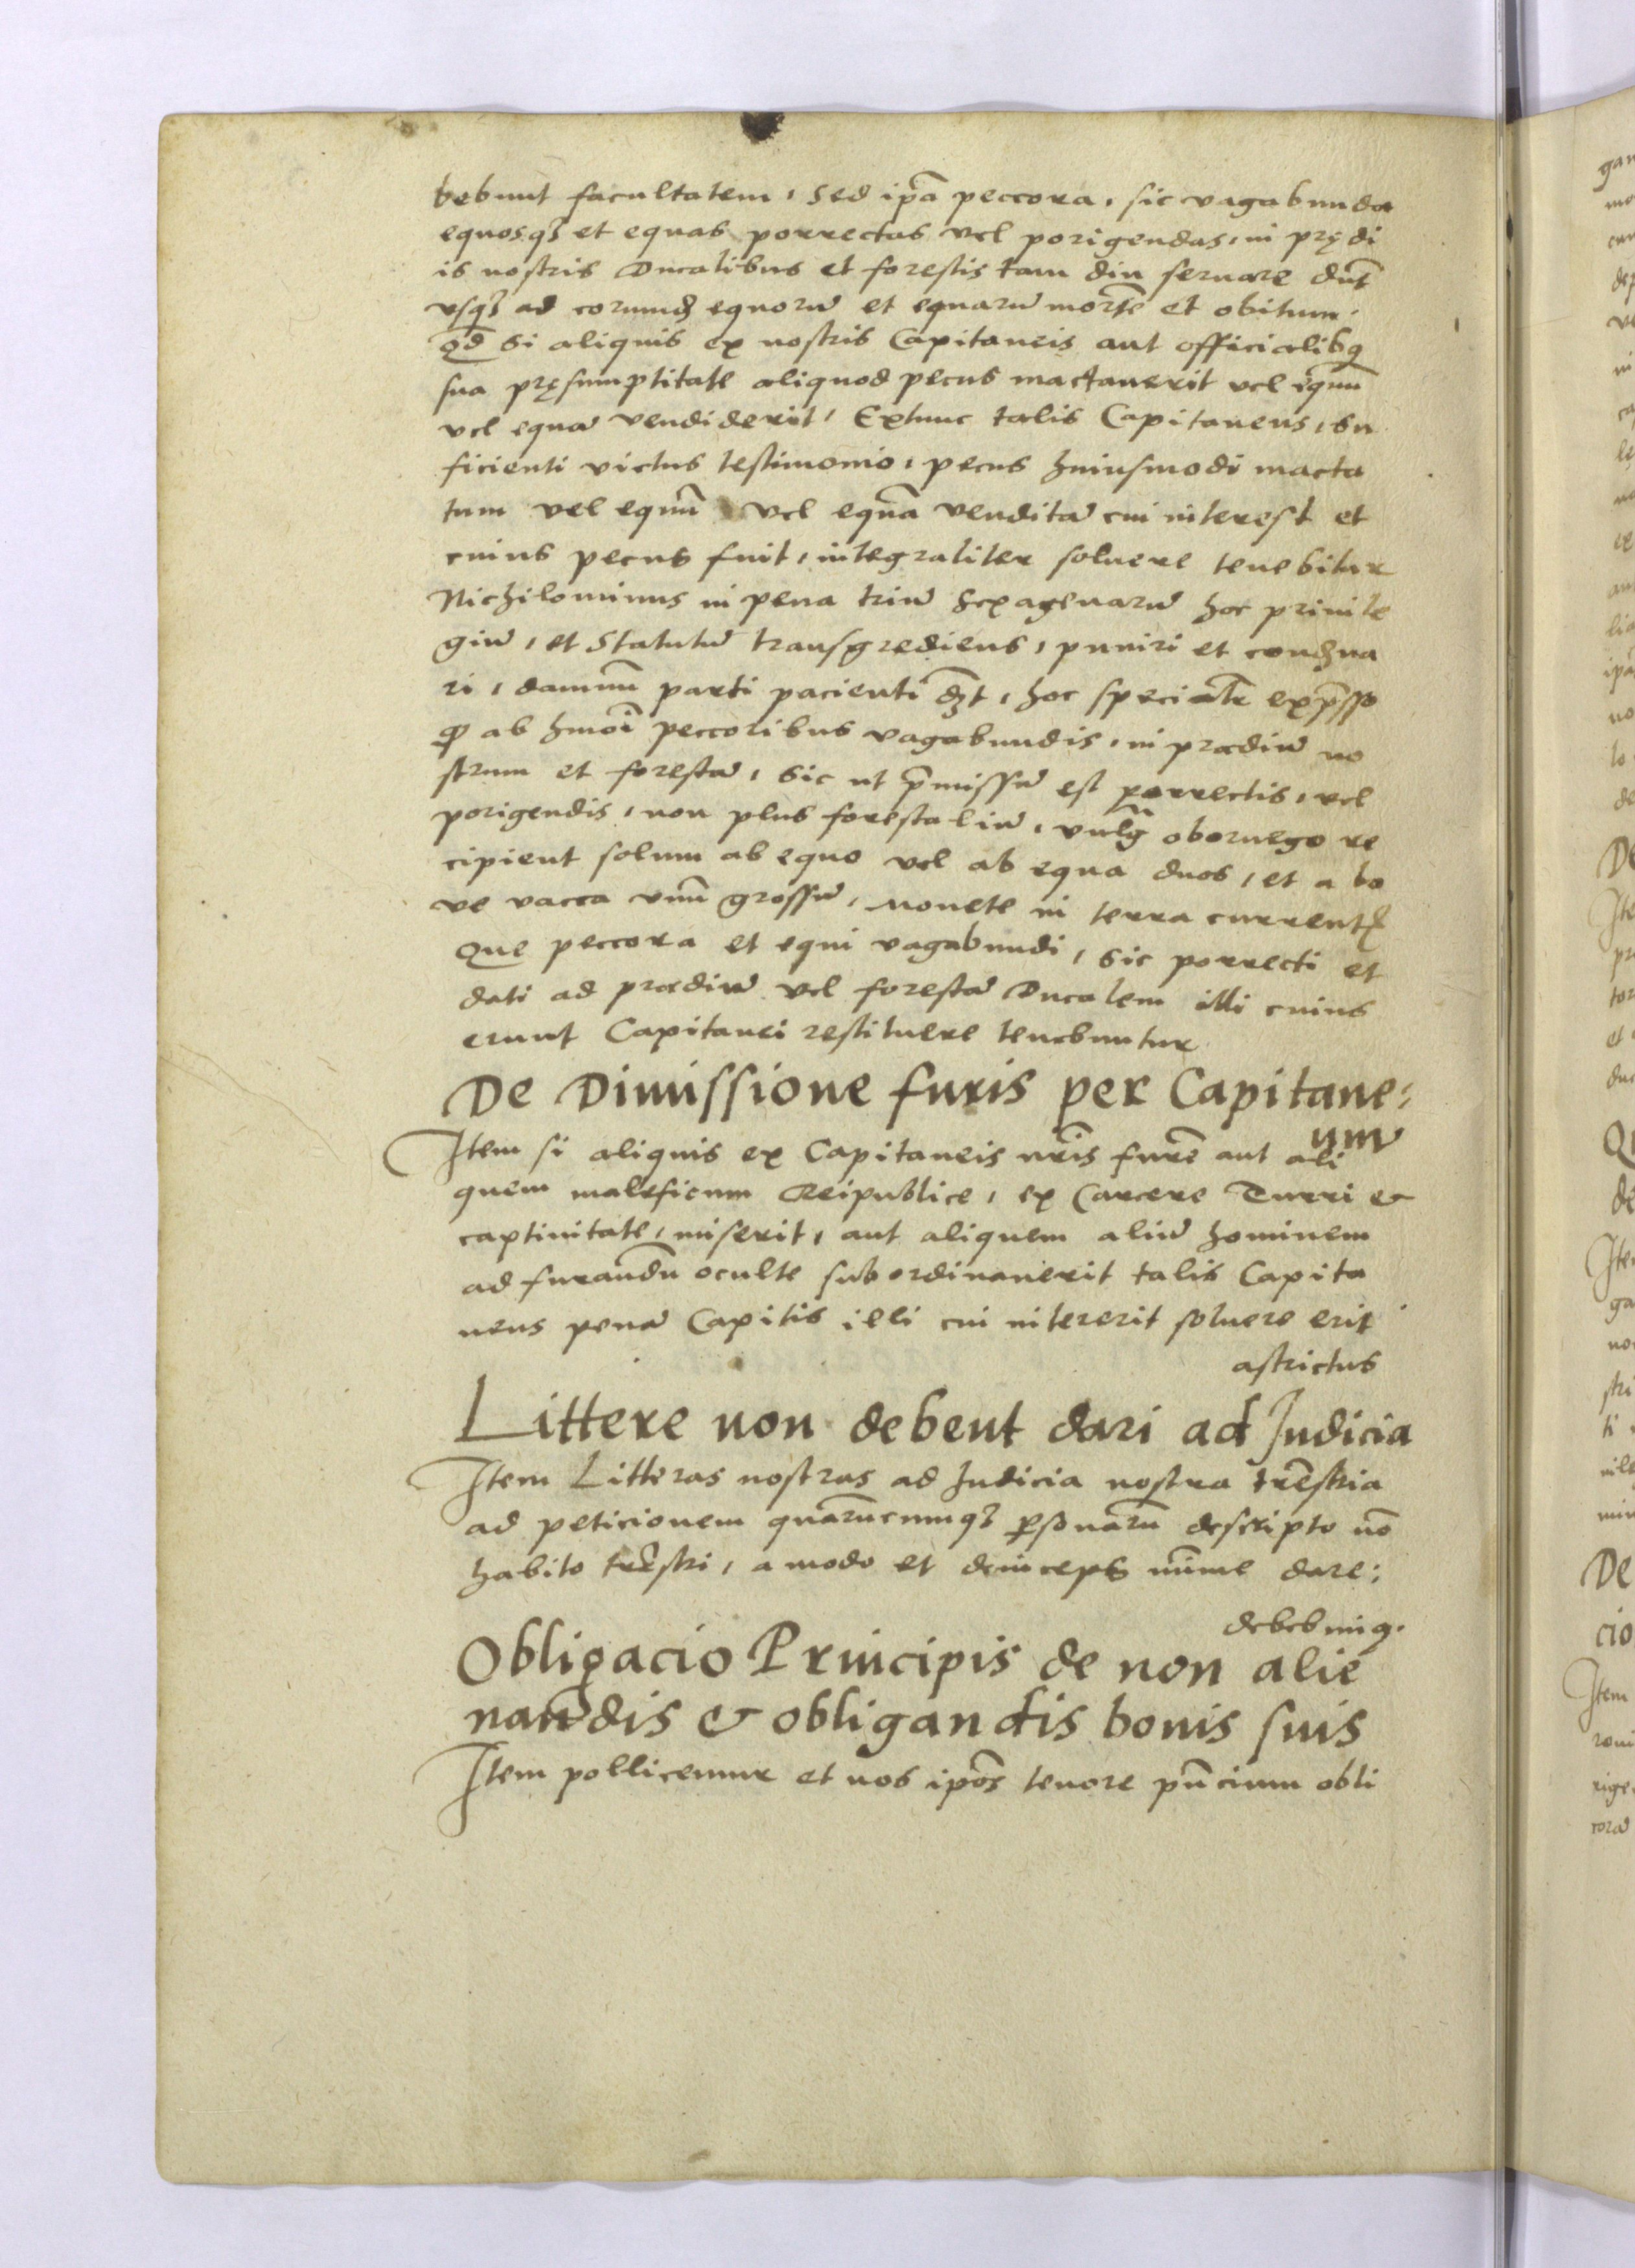 bebunt facultatem, Sed ip̄a peccora, sic vagabunda
equosq3 et equas porrectas vel porigendas, in prędi
is nostris Ducalibus et forestis tam diu seruare dn̄t
vsq3 ad eorumd equorū et equarū mortē et obitum.
qd Si aliquis ex nostris Capitaneis aut officialibq
sua pręsumptitate aliquod pecus mactauerit vel equū
vel equā vendiderit, Extunc talis Capitaneus, su
ficienti victus testimonio, pecus huiusmodi macta
tum vel equū vel equā venditā cui interest et
cuius pecus fuit, integraliter soluere tenebitur
Nichilominus in pena triū Sexagenarū hoc priuile
giū, et Statutū transgrediens, puniri et condna
ri, damnū parti pacienti dꝫt, hoc specialr̄ exp̄sso
ꝙ ab hmōi peccoribus vagabundis, in prædiū no
strum et forestā, sic ut p̄missū est porrectis, vel
porigendis, non plus forestaliū, vulg̅ obornego re
cipient solum ab equo vel ab equa duos, et a bo
ve vacca vnū grossū, Monete in terra current
Que peccora et equi vagabundi, sic porrecti et
dati ad prædiū vel forestā Ducalem illi cuius
erunt Capitanei restituere tenebuntur
De Dimissione furis per Capitane:
um
Item si aliquis ex Capitaneis nr̄is furē aut ali
quem maleficum Reipublice, ex Carcere Turri &
captiuitate, miserit, aut aliquem aliū hominem
ad furandū oculte subordinauerit talis Capita
neus penā Capitis illi cui intererit soluere erit
astrictus
Littere non debent dari ad Judicia
Item Litteras nostras ad Judicia nostra trēstria
ad peticionem quarūcumq3 ꝑsonarū descripto nō
habito trēstri, a modo et deinceps minime dare:
debebimq.
Obligacio Principis de non alie
nandis & obligandis bonis suis
Item pollicemur et nos ipōs tenore pn̄cium obli